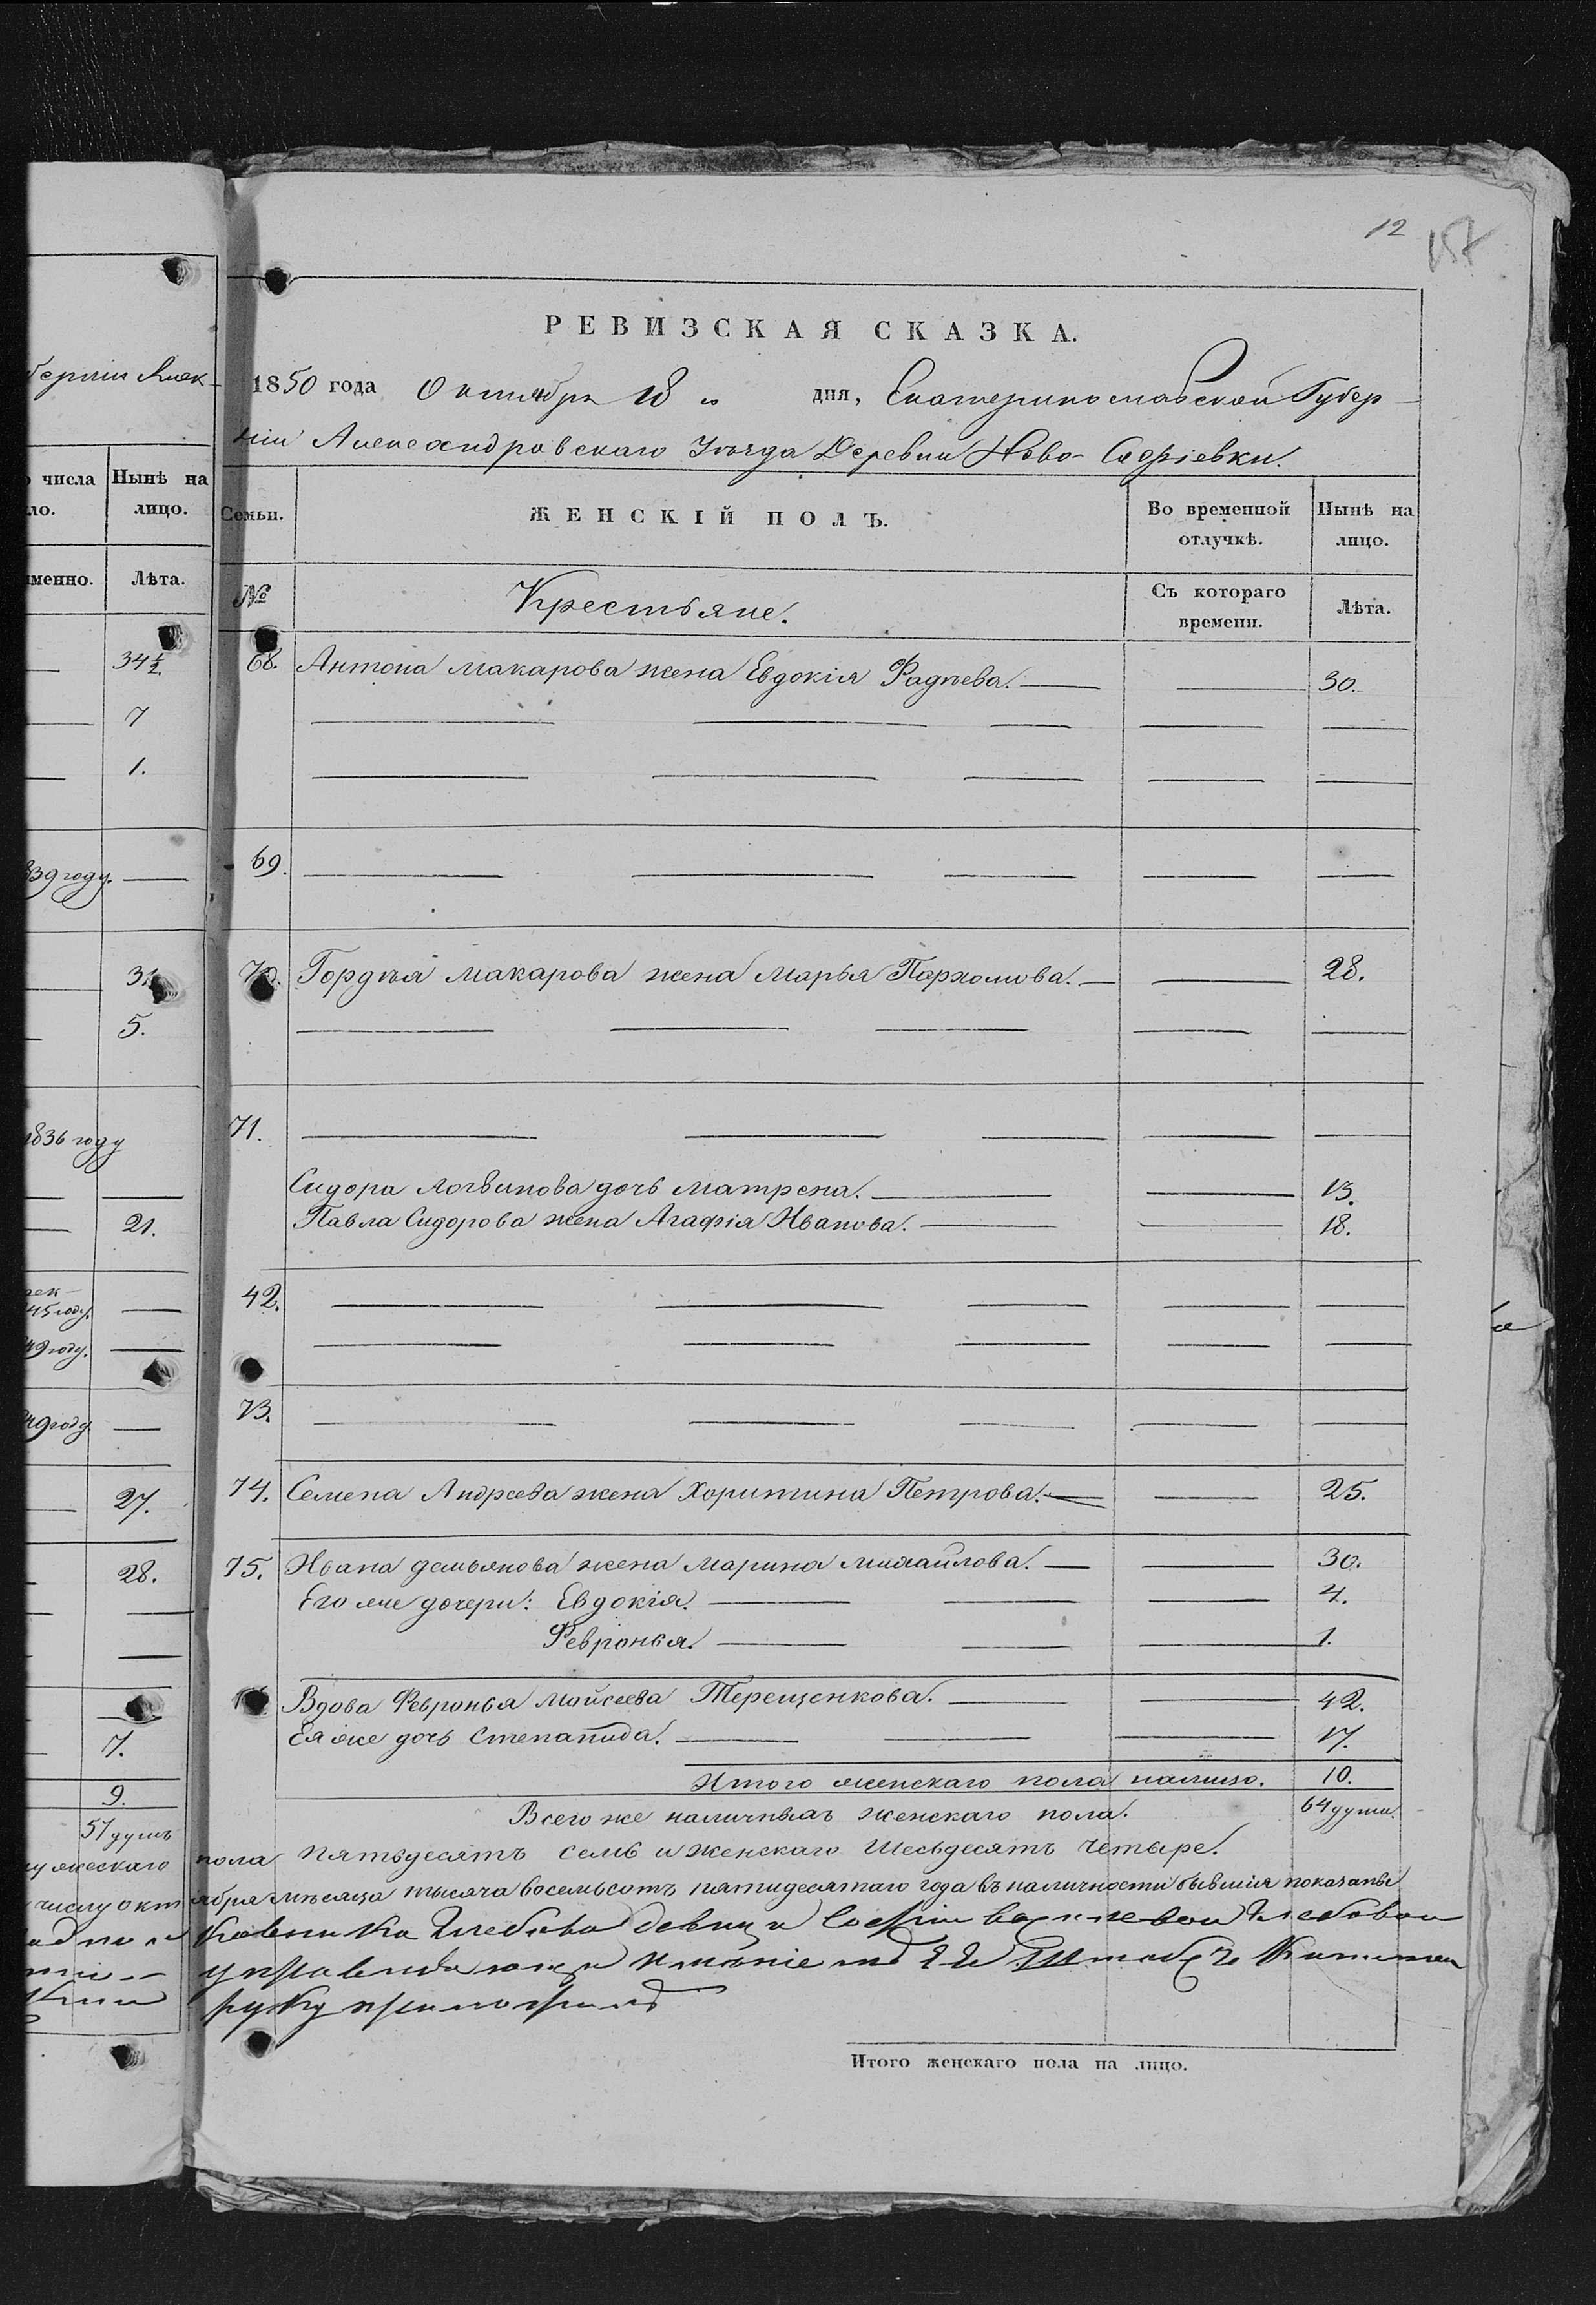 12
157
берніи Алек-
числа Нынѣ на
ло. лицо.
менно. Лѣта.
34½.
7
1.
839 году.
31
5.
1836 году
21.
45 году.
49 году.
49 году
27.
28.
7.
9.
57 душъ
РЕВИЗСКАЯ СКАЗКА.
1850 года Октября 18 дня, Екатеринославской Губер
ніи Александровскаго Уѣзда Деревни Ново-Софіевки.
Семьи. ЖЕНСКІЙ ПОЛЪ. Во временной отлучкѣ. Нынѣ на лицо.
№ Крестьяне. Съ котораго времени. Лѣта.
68. Антона Макарова жена Евдокія Фадѣева. 30.
69.
70. Гордѣя Макарова жена Марья Пархомова. 28.
71.
Сидора Логвинова дочь Матрена. 13.
Павла Сидорова жена Агафія Иванова. 18.
42.
73.
74. Семена Андреева жена Хоритина Петрова. 25.
75. Ивана Демьянова жена Марина Михайлова. 30.
Его же дочери: Евдокія. 4.
Февронья. 1.
Вдова Февронья Мойсеева Терещенкова. 42.
Ея же дочь Степанида. 17.
Итого женскаго пола налицо. 10.
Всего же наличныхъ женскаго пола. 64 души.
мужескаго пола пятьдесятъ семь и женскаго шесьдесятъ четыре.
числу октября мѣсяца тысяча восемьсотъ пятидесятаго года въ наличности бывшія показаны
девицы Софіи
руку приложилъ
Итого женскаго пола на лицо.